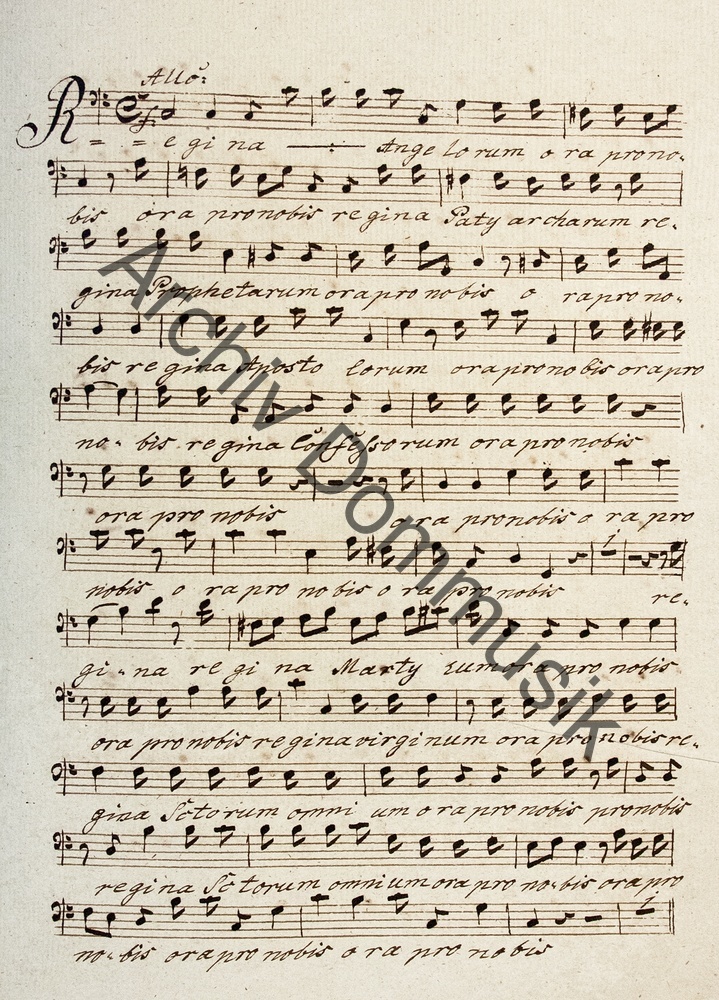 Allo:
R = = egina —:— Angelorum ora prono-
bis ora pronobis regina Patyarcharum re-
gina Prophetarum ora pro nobis o ra pro no-
bis regina Aposto lorum ora pronobis ora pro
no- bis regina Confessorum ora pro nobis
ora pro nobis ora pronobis o ra pro
nobis o ra pro nobis o ra pro nobis re-
gi-na regina Marty rum ora pro nobis
ora pronobis regina virginum ora pro nobis re-
gina Sctorum omni um ora pro nobis pronobis
regina Sctorum omnium ora pro no-bis ora pro
no-bis ora pro nobis o ra pro nobis
Archiv Dommusik